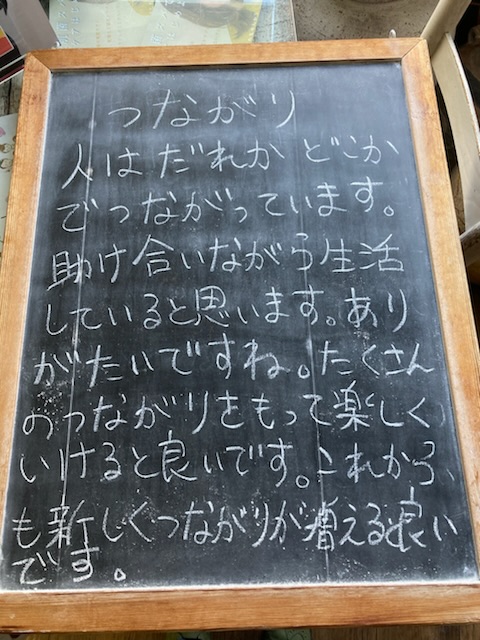 つながり
人はだれか どこか
でつながっています。
助け合いながら生活
していると思います。あり
がたいですね。たくさん
のつながりをもって楽しく
いけると良いです。これから
も新しくつながりが増える良い
です。